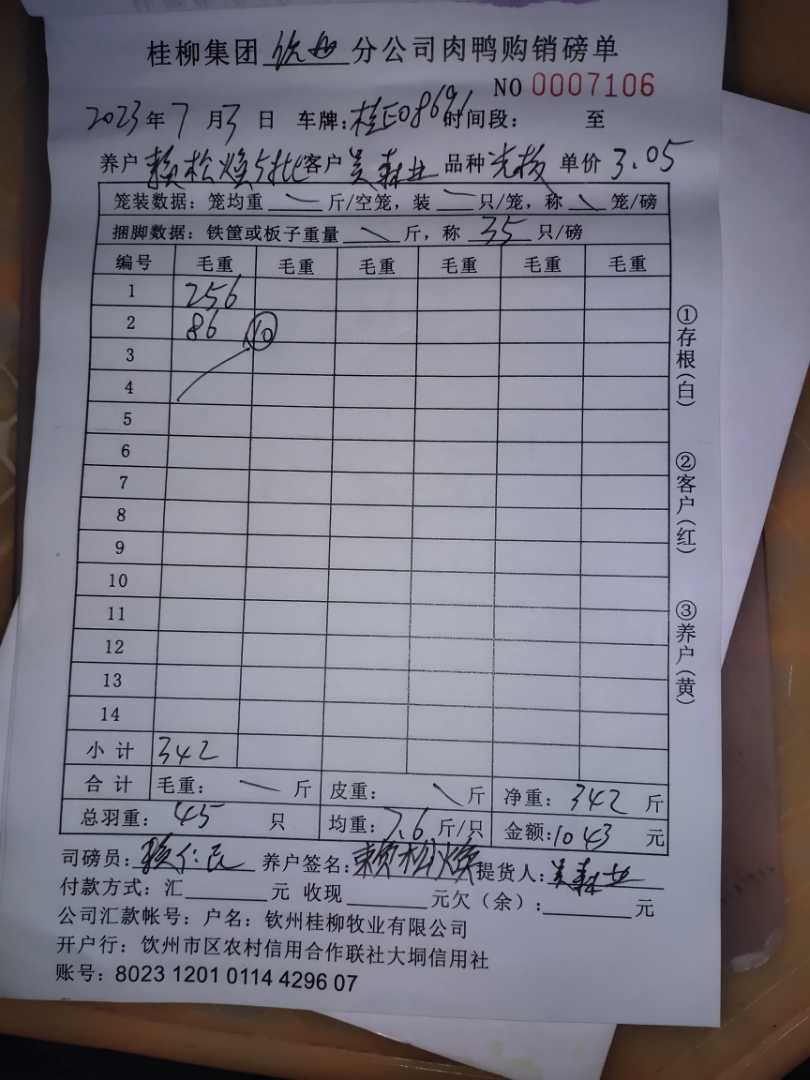 桂柳集团 钦州 分公司肉鸭购销磅单
NO 0007106
2023 年 7 月 3 日 车牌: 时间段: 至
养户 赖松焕 客户 品种 单价 3.05
笼装数据: 笼均重 斤/空笼, 装 只/笼, 称 笼/磅
捆脚数据: 铁筐或板子重量 斤, 称 35 只/磅
编号 毛重 毛重 毛重 毛重 毛重 毛重
1 256
2 86 10
3
4
5
6
7
8
9
10
11
12
13
14
小计 342
合计 毛重: 斤 皮重: 斤 净重: 342 斤
总羽重: 45 只 均重: 7.6 斤/只 金额: 1043 元
司磅员: 养户签名: 赖松焕 提货人:
付款方式: 汇 元 收现 元欠（余）: 元
公司汇款帐号: 户名: 钦州桂柳牧业有限公司
开户行: 钦州市区农村信用合作联社大垌信用社
账号: 8023 1201 0114 4296 07
①存根(白)
②客户(红)
③养户(黄)